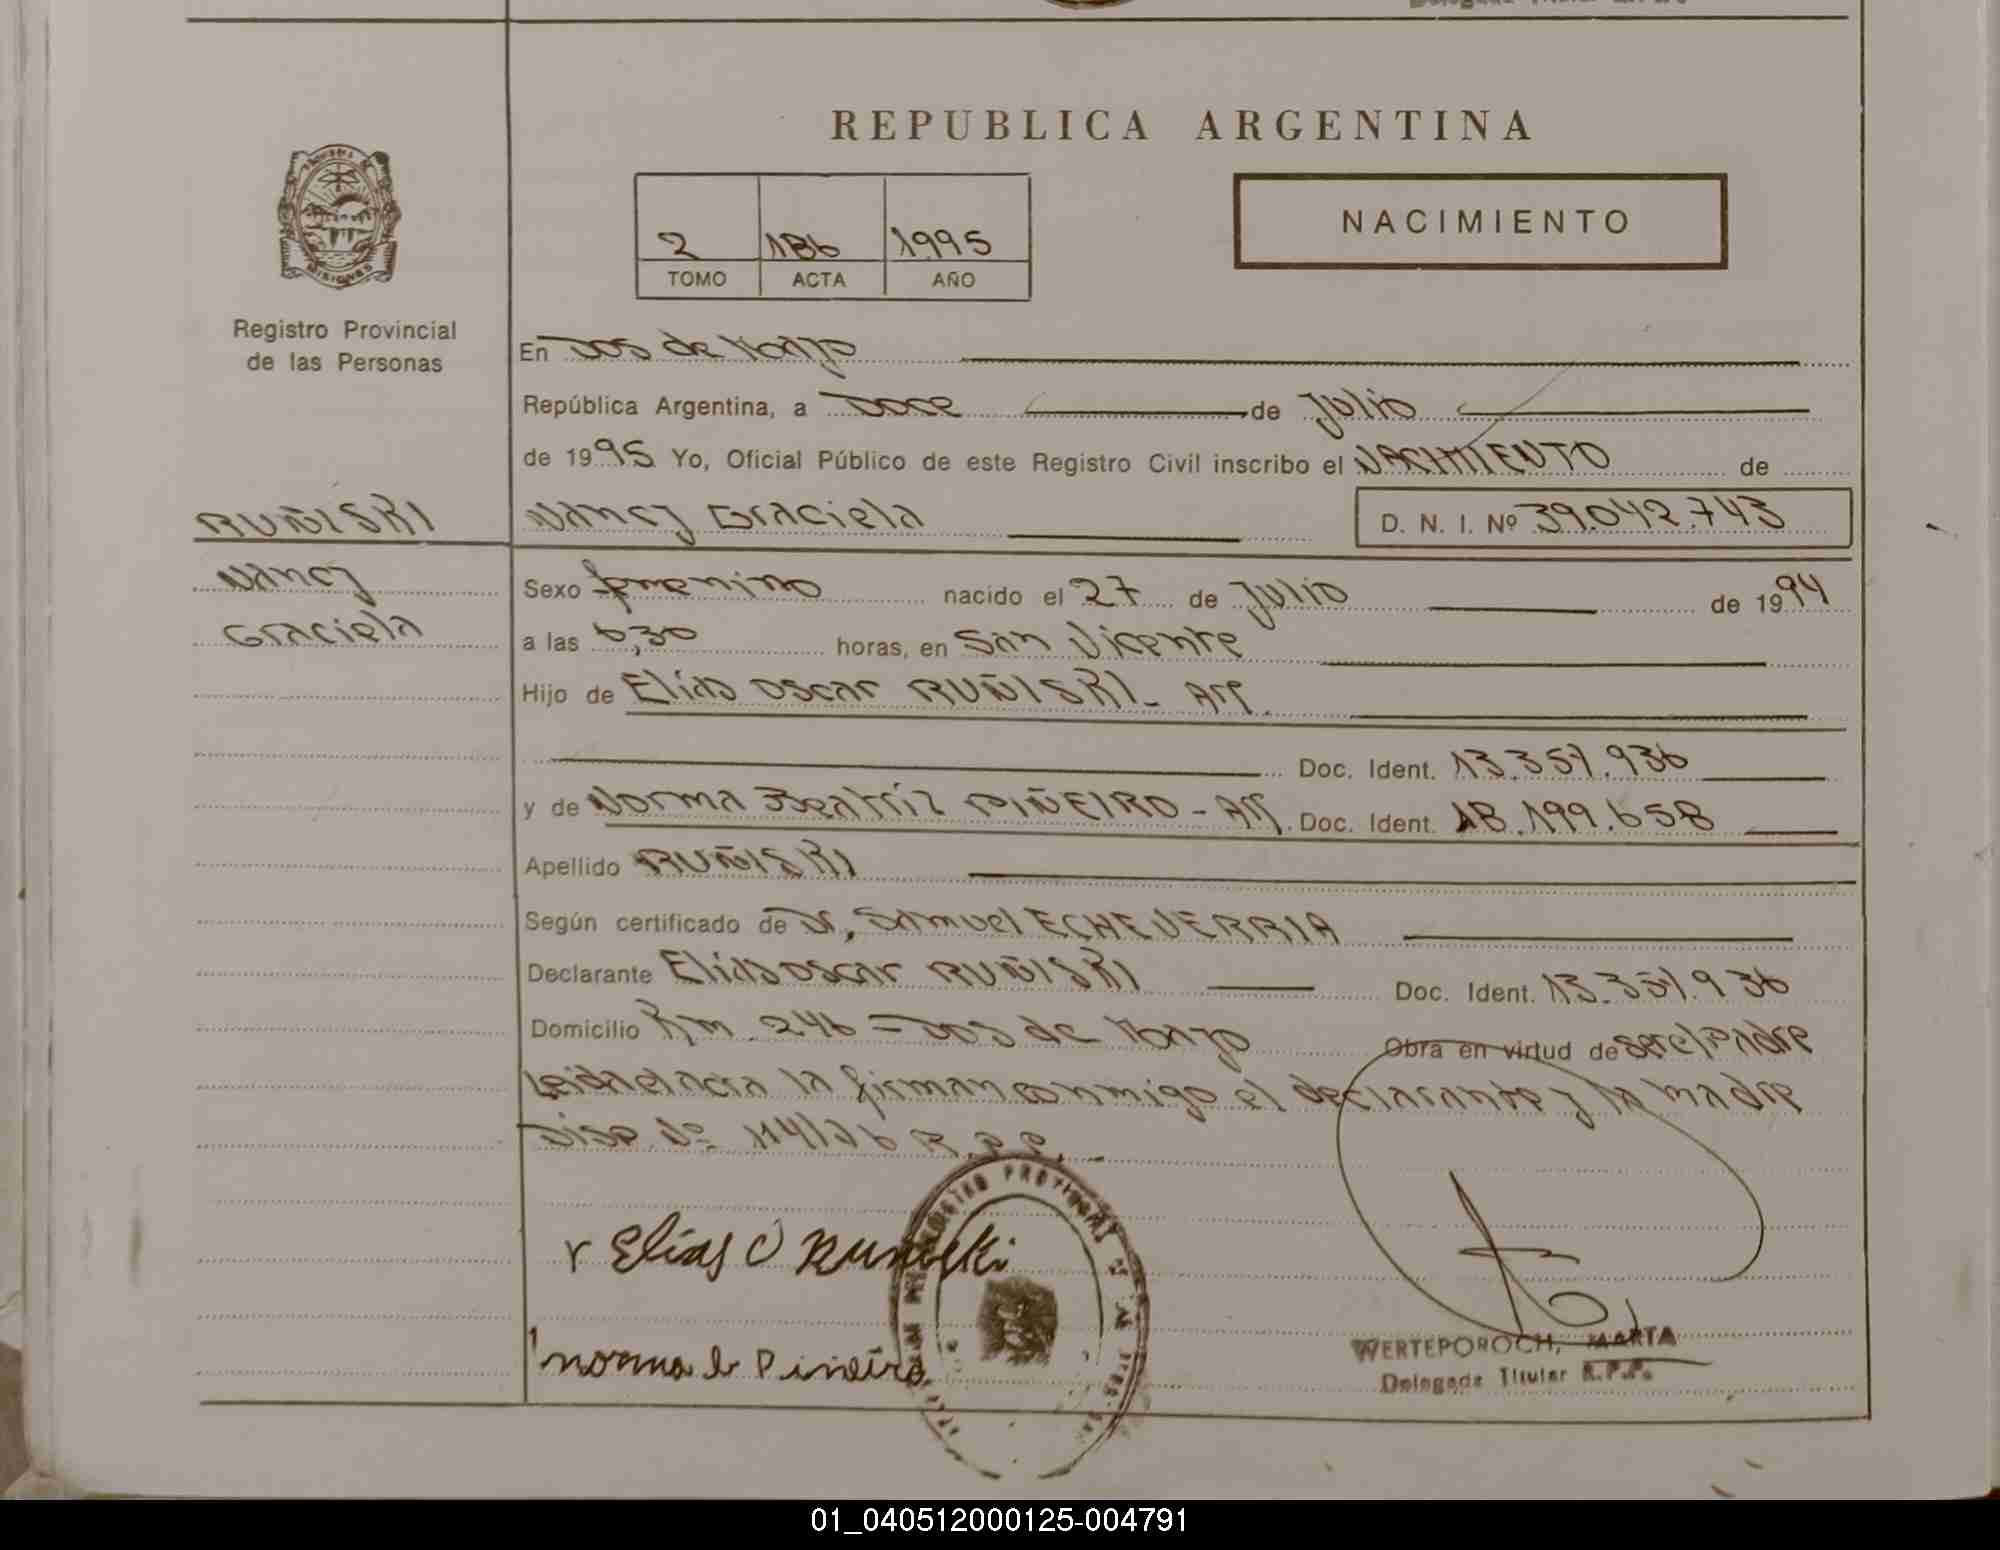 REPUBLICA ARGENTINA
NACIMIENTO
2 186 1995
TOMO ACTA AÑO
MISIONES
Registro Provincial
de las Personas
En Dos de Mayo
República Argentina, a Doce de Julio
de 1995 Yo, Oficial Público de este Registro Civil inscribo el NACIMIENTO de
RUÑISKI
Nancy
Graciela
Nancy Graciela D. N. I. Nº 39.042.743
Sexo femenino nacido el 27 de Julio de 1994
a las 6,30 horas, en San Vicente
Hijo de Elias Oscar RUÑISKI - Arg.
Doc. Ident. 13.357.936
y de Norma Beatriz PIÑEIRO - Arg. Doc. Ident. 18.199.658
Apellido RUÑISKI
Según certificado de Dr, Samuel ECHEVERRIA
Declarante Elias Oscar RUÑISKI Doc. Ident. 13.357.936
Domicilio Km 246 = Dos de Mayo Obra en virtud de ser el Padre
Leida el acta la firman conmigo el declarante y la madre
Disp Nº R.P.P.
Elias O Runiski
norma b Pineiro
WERTEPOROCH, MARTA
Delegada Titular R.P.P.
01_040512000125-004791